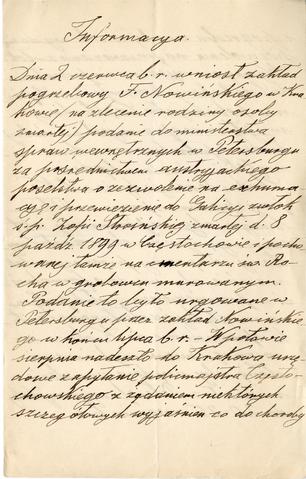 Informacya.
Dnia 2 czerwca b.r. wniosł zakład
pogrzebowy F. Nowińskiego w Kra
kowie (na zlecenie rodziny osoby
zmarłej) podanie do ministerstwa
spraw wewnętrznych w Petersburgu
za pośrednictwem austryjackiego
poselstwa o zezwolenie na exhuma
cyę i przewiezienie do Galicyi zwłok
ś.p. Zofii zmarłej d. 8
paźdz. 1899 w Częstochowie i pocho
wanej tamże na cmentarzu św. Ro
cha w grobowcu murowanym.
Podanie to było urgowane w
Petersburgu przez zakład Nowińskie
go w końcu lipca b.r. - W połowie
sierpnia nadeszło do Krakowa urzę
dowe zapytanie policmajstra Często-
chowskiego z żądaniem niektórych
szczegółowych wyjaśnień co do choroby